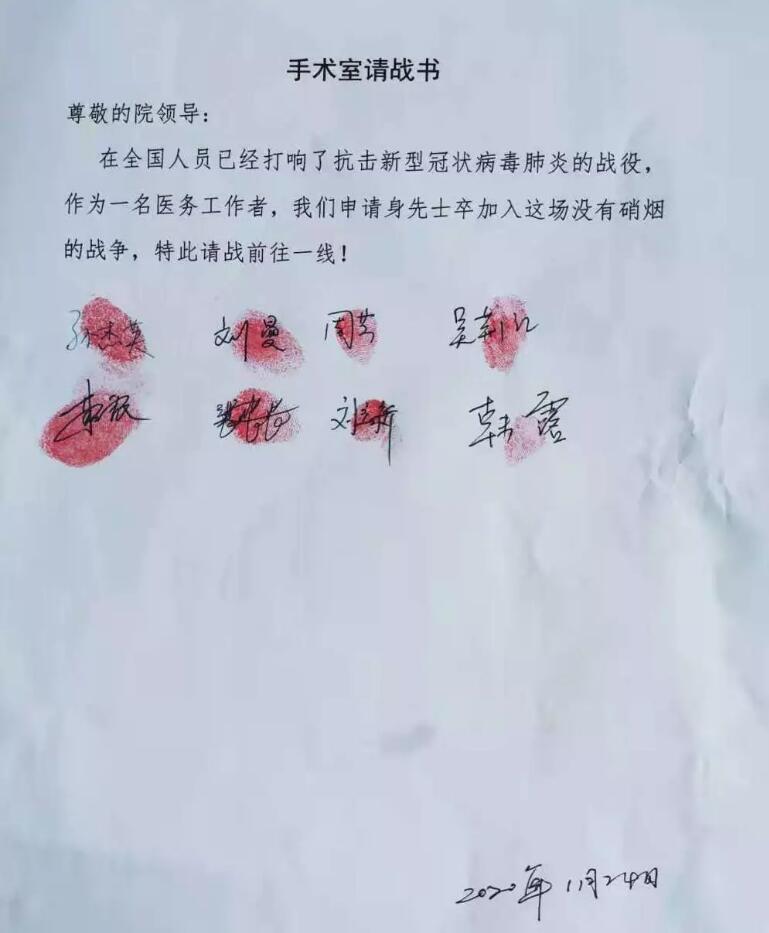 手术室请战书
尊敬的院领导：
在全国人员已经打响了抗击新型冠状病毒肺炎的战役，
作为一名医务工作者，我们申请身先士卒加入这场没有硝烟
的战争，特此请战前往一线！
刘曼 周芸
刘 韩露
2020年11月24日